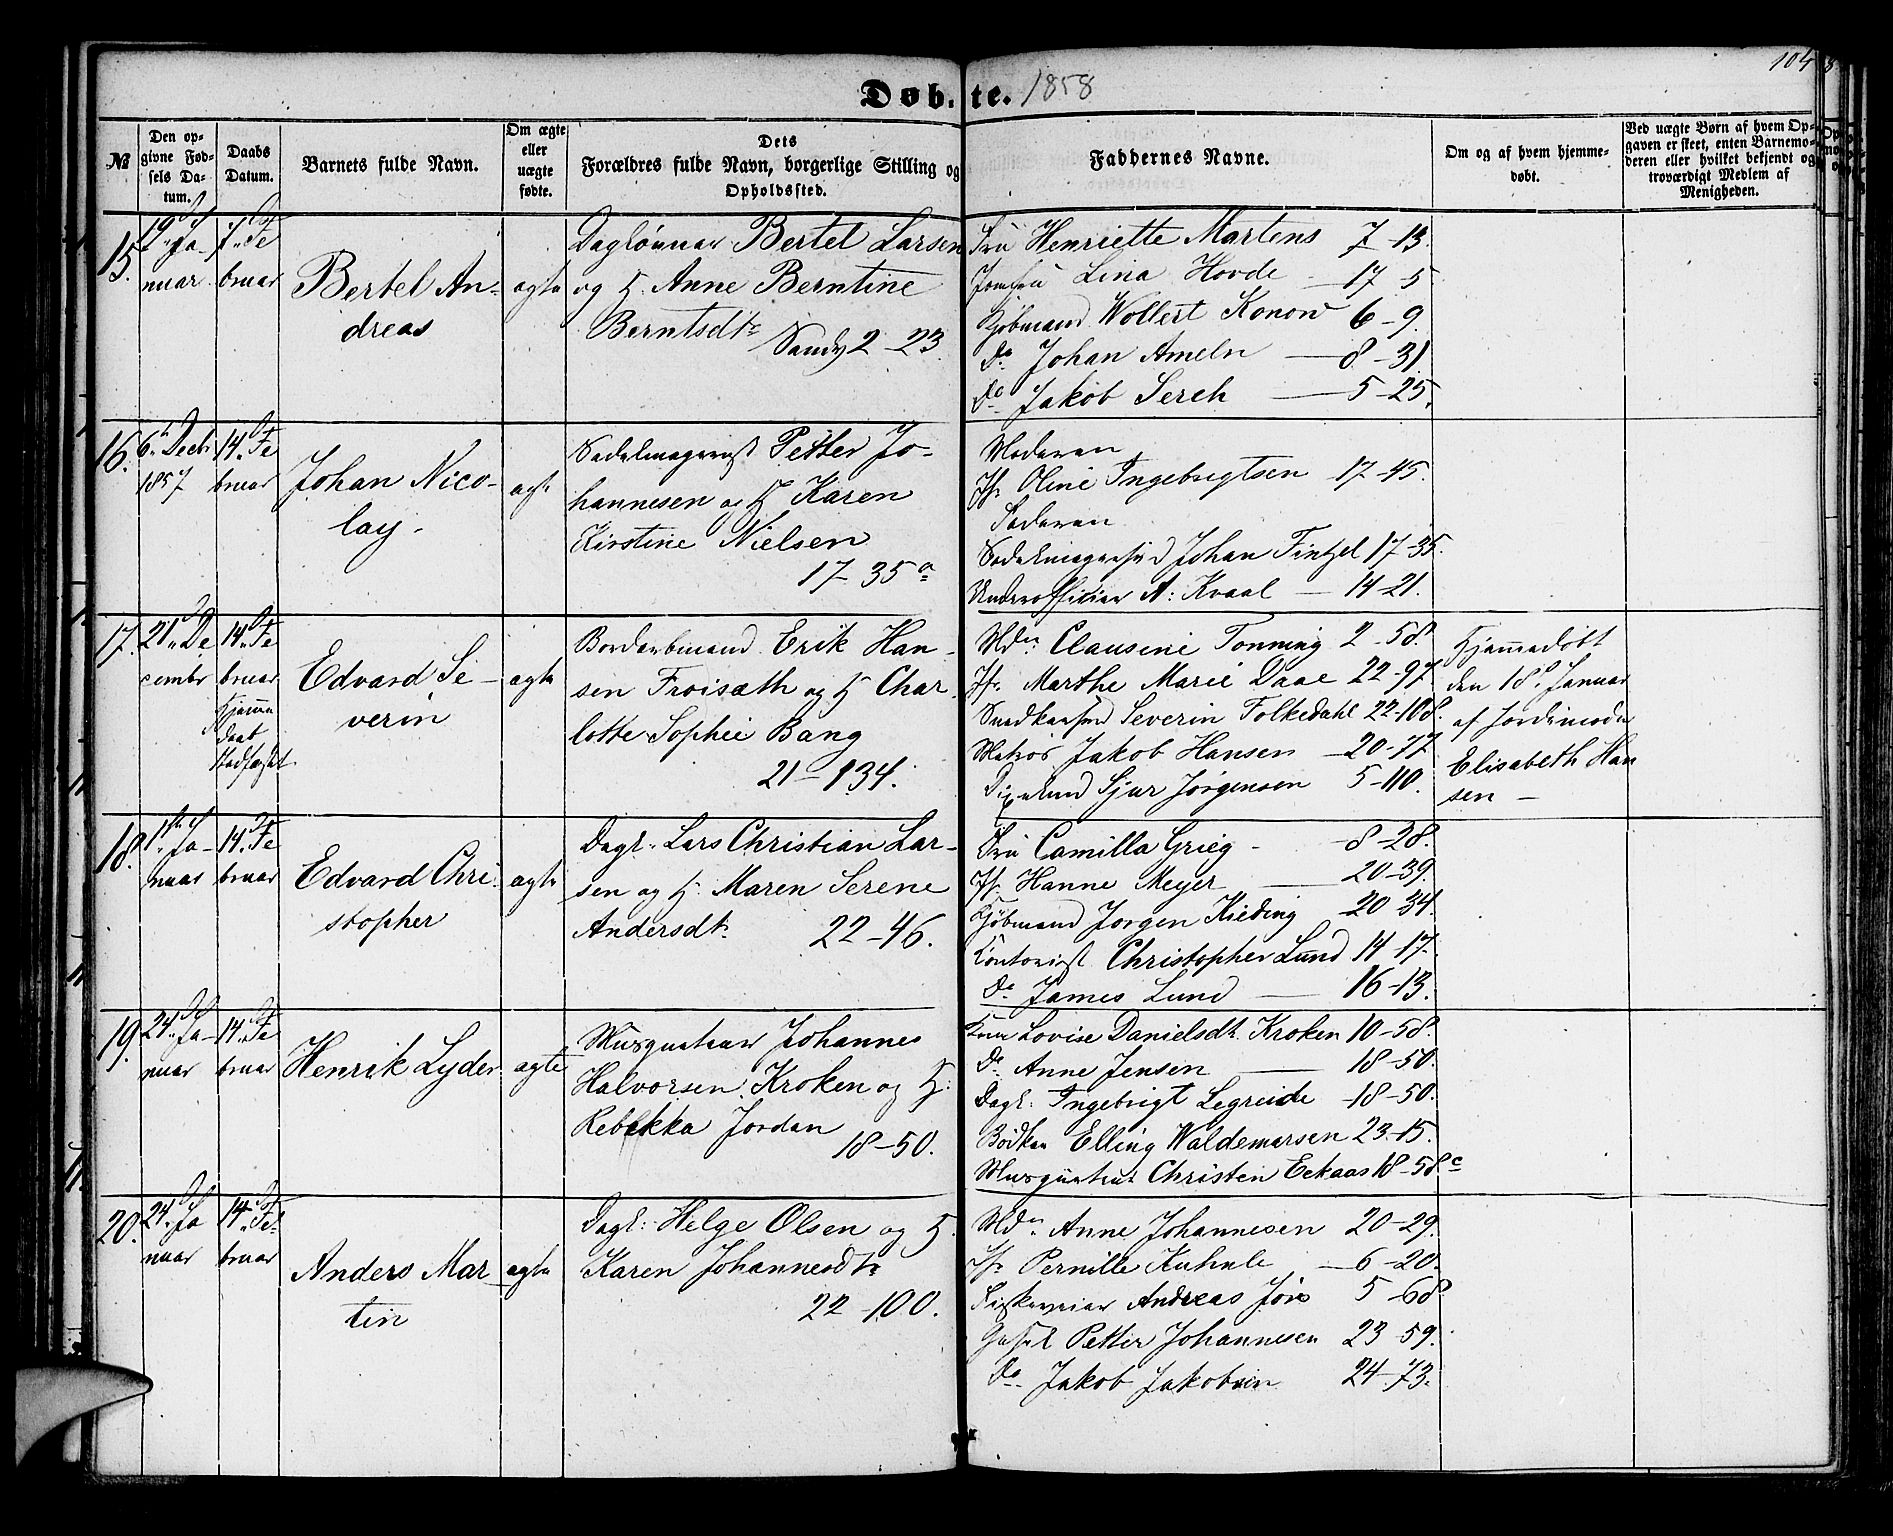 104
Døbte. 1858
№
Den opgivne Fødsels Datum.
Daabs Datum.
Barnets fulde Navn.
Om ægte eller uægte fødte.
Dets Forældres fulde Navn, borgerlige Stilling og Opholdssted.
Faddernes Navne.
Om og af hvem hjemmedøbt.
Ved uægte Børn af hvem Opgaven er skeet, enten Barnemoderen eller hvilket bekjendt og troværdigt Medlem af Menigheden.
15.
19de Ja-
nuar
7de Fe
bruar
Bertel An-
dreas
ægte
Daglønner Bertel Larsen
og H. Anne Berntine
Berntsdtr
Sandv 2-23.
Fru Henriette Martens 7-13.
Jomfru Lina Hovde - 17-5
Kjøbmand Wollert Konow 6-9.
Do Johan Ameln — 8-31
Do Jakob Serch — 5-25.
16.
6te Decbr
1857
14de Fe
bruar
Johan Nico-
lay.
ægte
Sadelmagersv Petter Jo-
hannesen og H Karen
Kirstine Nielsen
17-35a
Moderen
Jfr Oline Ingebrigtsen 17-45.
Faderen
Sadelmagersvd Johan Fintzel 17-35.
Underofficier A: Kvaal — 14-21.
17.
21de De
cembr
14de Fe
bruar
Hjemme
daab
stadfæstet
Edvard Se-
verin
ægte
Bordarbmand Erik Han-
sen Froisæth og H Char-
lotte Sophie Bang
21-134.
Mdm: Clausine Tonning 2-58.
Jfr. Marthe Marie Daae 22-97.
Snedkersvd Severin Folkedahl 22-108.
Matros Jakob Hansen — 20-77
Sjur Jørgensen 5-110.
Hjemmedøbt
den 18de Januar
af Jordemoder
Elisabeth Han
sen —
18.
1ste Ja-
nuar
14de Fe
bruar
Edvard Chri-
stopher
ægte
Dagl. Lars Christian Lar-
sen og H. Maren Serene
Andersdtr. 22-46.
Fru Camilla Grieg - 8-28.
Jf. Hanne Meyer — 20-39.
Kjøbmand Jorgen Kieding 20-34.
Kontorist Christopher Lund 14-17.
Do James Lund — 16-13.
19.
24de Ja-
nuar
14de Fe
bruar
Henrik Lyder
ægte
Musqueteer Johannes
Halvorsen Kroken og H:
Rebekka Jordan
18-50.
Kone Lovise Danielsdtr. Kroken 10-58.
Do Anne Jensen — 18-50.
Dagl: Ingebrigt Legreide 18-50.
Bødker Elling Waldemarsen 23-15.
Musqueteer Christen Eekaas 18-58c
20.
24de Ja
nuar
14de Fe-
bruar
Anders Mar
tin
ægte
Dagl: Helge Olsen og H.
Karen Johannesdtr
22-100.
Mdm. Anne Johannesen 20-29.
Jfr Pernille Kuhnle — 6-20.
Andreas 5-68
Gesel Petter Johannesen 23-59.
Do Jakob Jakobsen 24-73.